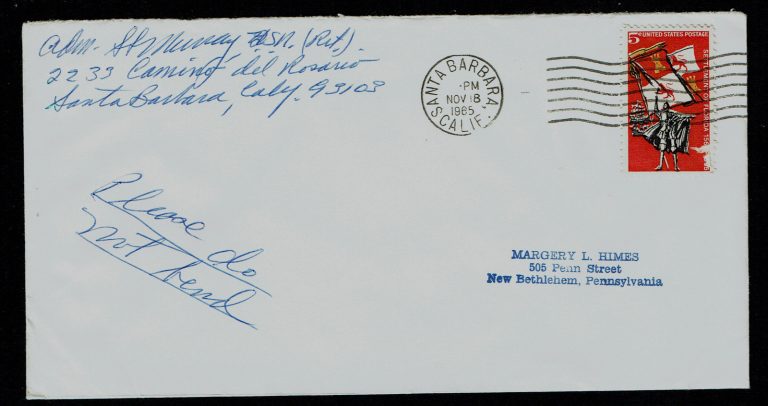 Adm. SS Murray, USN. (Ret).
2233 Camino del Rosario
Santa Barbara, Calif. 93103
SANTA BARBARA
PM
NOV 18
1965
CALIF.
5c UNITED STATES POSTAGE
SETTLEMENT OF FLORIDA
Please do
not bend
MARGERY L. HIMES
505 Penn Street
New Bethlehem, Pennsylvania